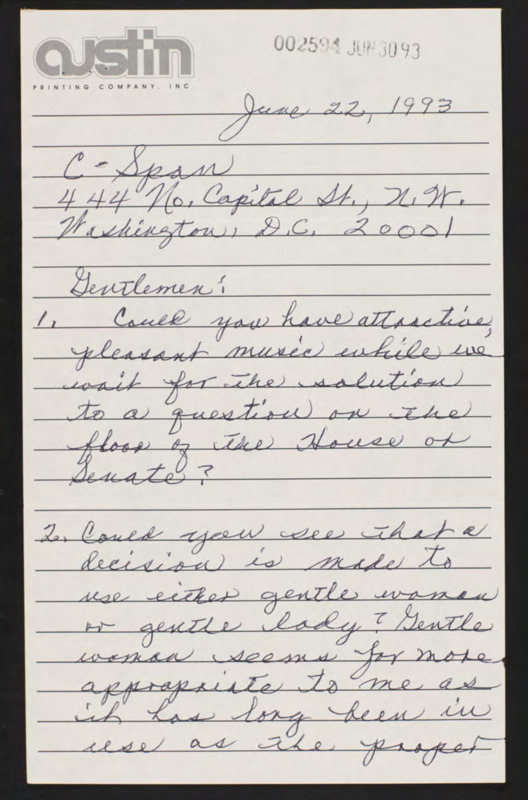 austin
PRINTING COMPANY, INC
002594 JUN 30 93
June 22, 1993
C-Span
444 No. Capital St., N.W.
Washington, D.C. 20001
Gentlemen:
1. Could you have attractive,
pleasant music while we
wait for the solution
to a question on the
floor of the House or
Senate?
2. Could you see that a
decision is made to
use either gentle woman
or gentle lady? Gentle
woman seems far more
appropriate to me as
it has long been in
use as the proper